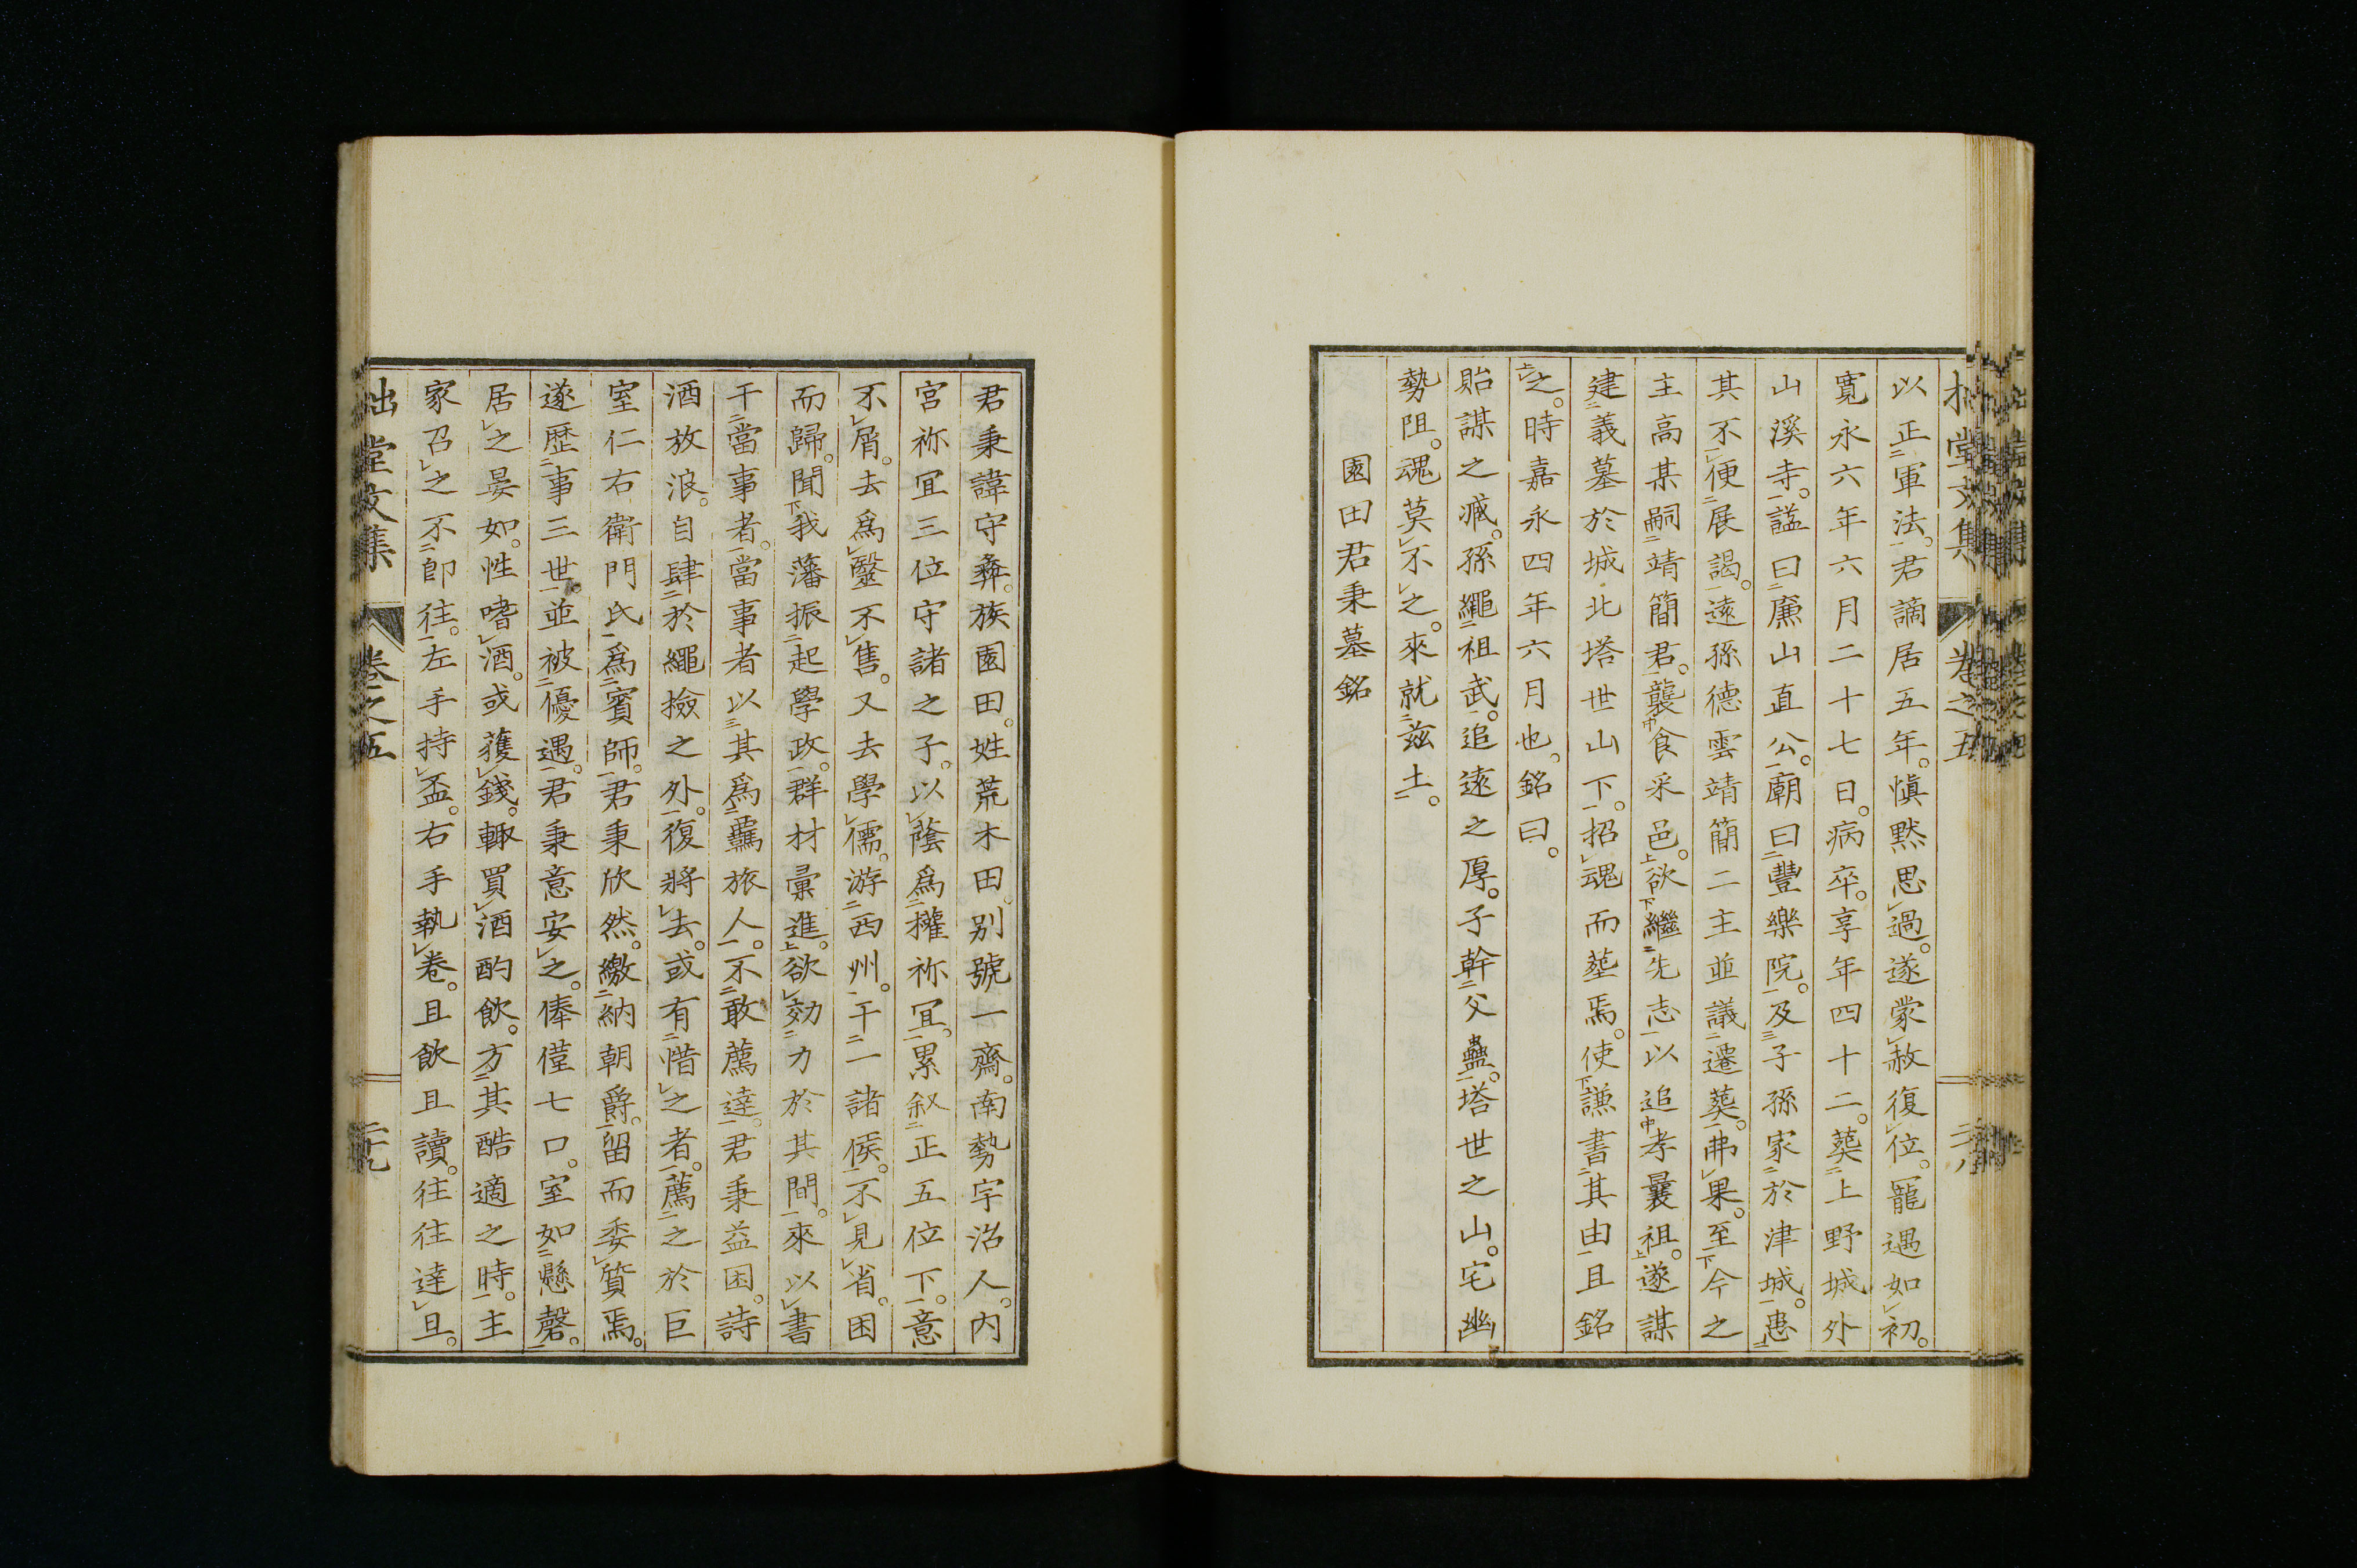 拙堂文集 卷之五 二十八
以正軍法。君謫居五年。愼默思過。遂蒙赦復位。寵遇如初。
寛永六年六月二十七日。病卒。享年四十二。葬上野城外
山溪寺。謚曰廉山直公。廟曰豐樂院。及子孫家於津城。患
其不便展謁。遠孫德雲靖簡二主並議遷葬。弗果。至今之
主高某嗣靖簡君。襲食采邑。欲繼先志以追孝曩祖。遂謀
建義墓於城北塔世山下。招魂而塟焉。使謙書其由且銘
之。時嘉永四年六月也。銘曰。
貽謀之臧。孫繩祖武。追遠之厚。子幹父蠱。塔世之山。宅幽
勢阻。魂莫不之。來就茲土。
園田君秉墓銘
君秉諱守彜。族園田。姓荒木田。别號一齋。南勢宇治人。内
宮祢冝三位守諸之子。以蔭爲權祢冝。累叙正五位下。意
不屑。去爲毉不售。又去學儒。游西州。干一諸侯。不見省。困
而歸。聞我藩振起學政。群材彙進。欲効力於其間。來以書
干當事者。當事者以其爲羈旅人。不敢薦達。君秉益困。詩
酒放浪。自肆於繩撿之外。復將去。或有惜之者。薦之於巨
室仁右衛門氏爲賓師。君秉欣然。繳納朝爵。留而委質焉。
遂歴事三世。並被優遇。君秉意安之。俸僅七口。室如懸磬。
居之晏如。性嗜酒。或獲錢。輙買酒酌飲。方其酷適之時。主
家召之不卽往。左手持盃。右手執卷。且飲且讀。往往達旦。
拙堂文集 卷之五 二十九